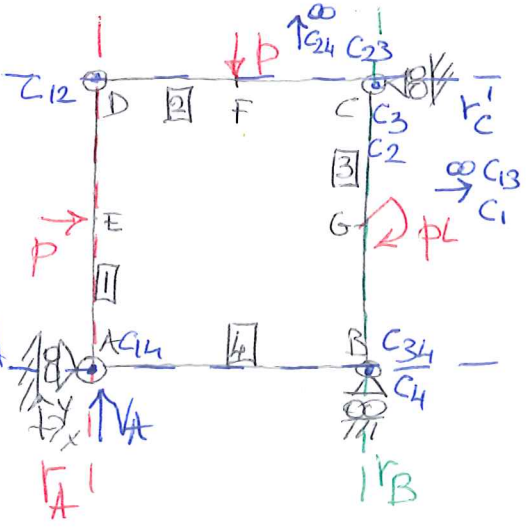 ∞
C24
C23
P
C12
D
2
F
C
rC'
C3
C2
3
∞ C13
C1
P
E
G
PL
1
A C14
4
B
C34
C4
y
x
VA
rA
rB